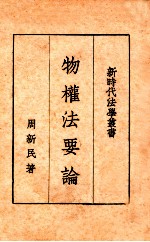 新時代法學叢書
物權法要論
周新民著